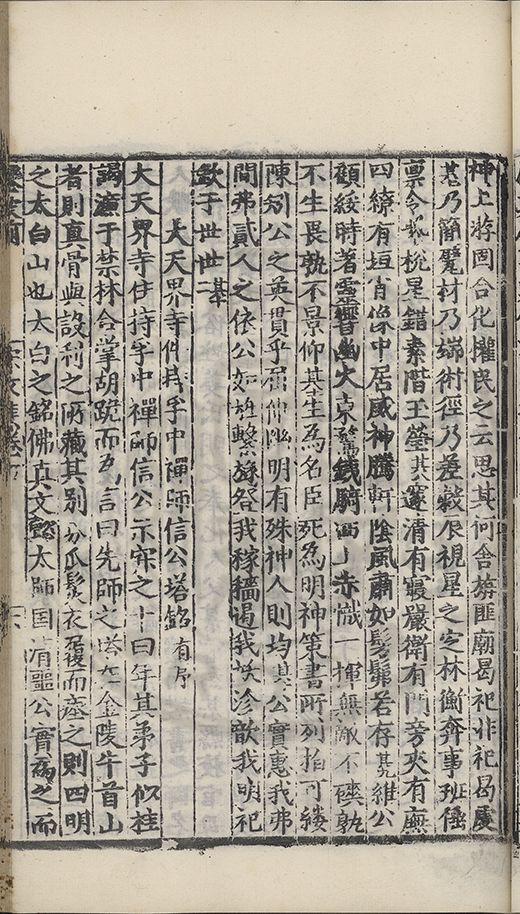 神上游固合化權民之云思其何舍旃匪廟曷祀非祀曷處
乃簡甓材乃端術徑乃差穀辰視星之定林衡奔事班倕
禀令牧梡星錯素階玉瑩其邃清有寢嚴衛有門旁夾有廡
四繚有垣肖像中居威神騰軒陰風肅如髣髴若存維公
顧綏時著靈響幽大東驚錢騎西赤幟一揮無敵不磔孰
不生畏孰不景仰其生為名臣死為明神策書所列指可縷
陳矧公之英貫乎屈伸幽明有殊神人則均其公實惠我弗
間弗貳人之依公如旌繫旒公我稼穡遏我妖沴歆我明祀
歆于世世其
大天界寺住持孚中禪師信公塔銘有序
大天界寺住持孚中禪師信公示寂之十四年其弟子似桂
謁濂于禁林合掌胡跪而為言曰先師之塔在金陵牛首山
者則真骨與設利之所藏其別分瓜髮衣履而座之則四明
之太白山也太白之銘佛真文懿太師國清噩公實為之而